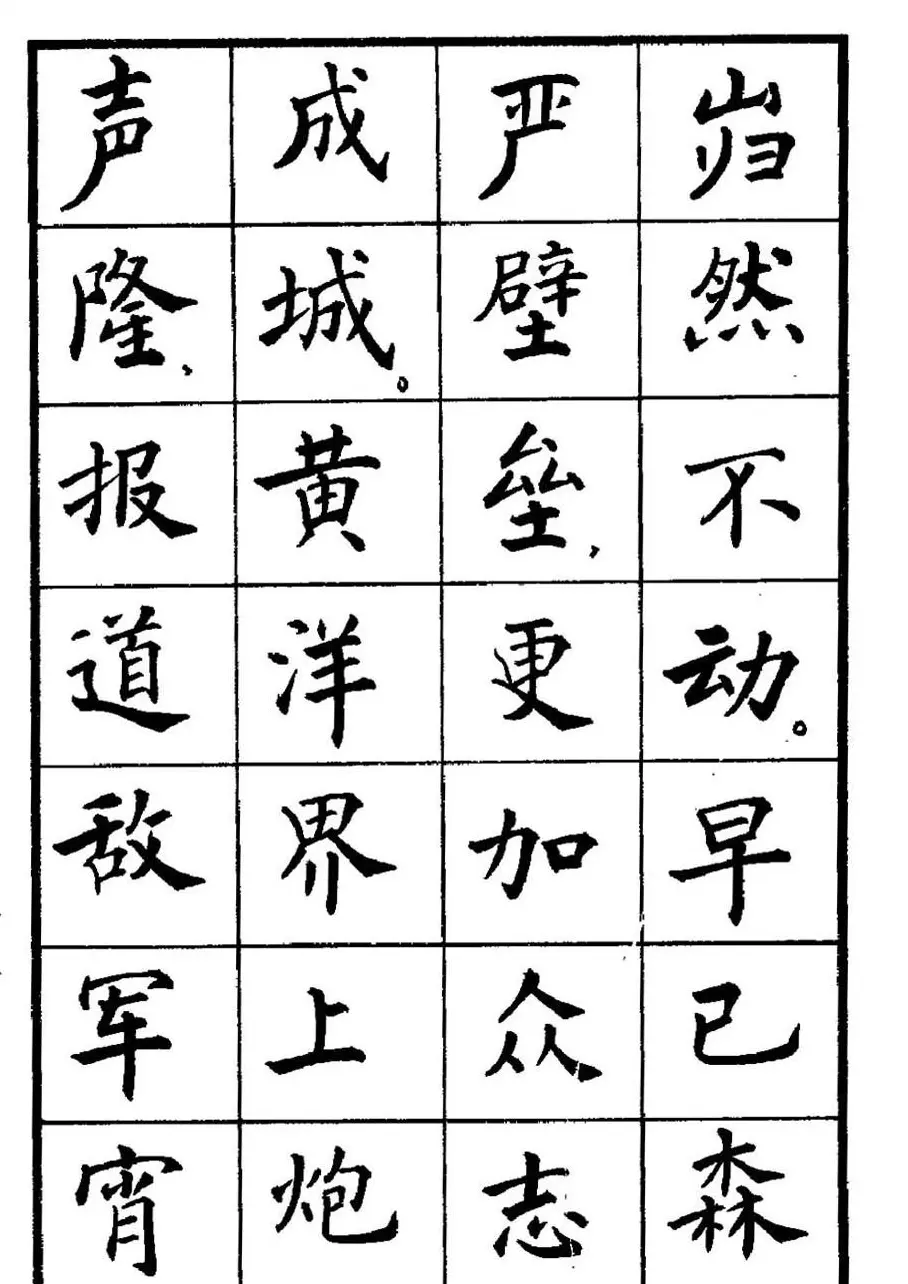 岿然不动。早已森
严壁垒，更加众志
成城。黄洋界上炮
声隆，报道敌军宵